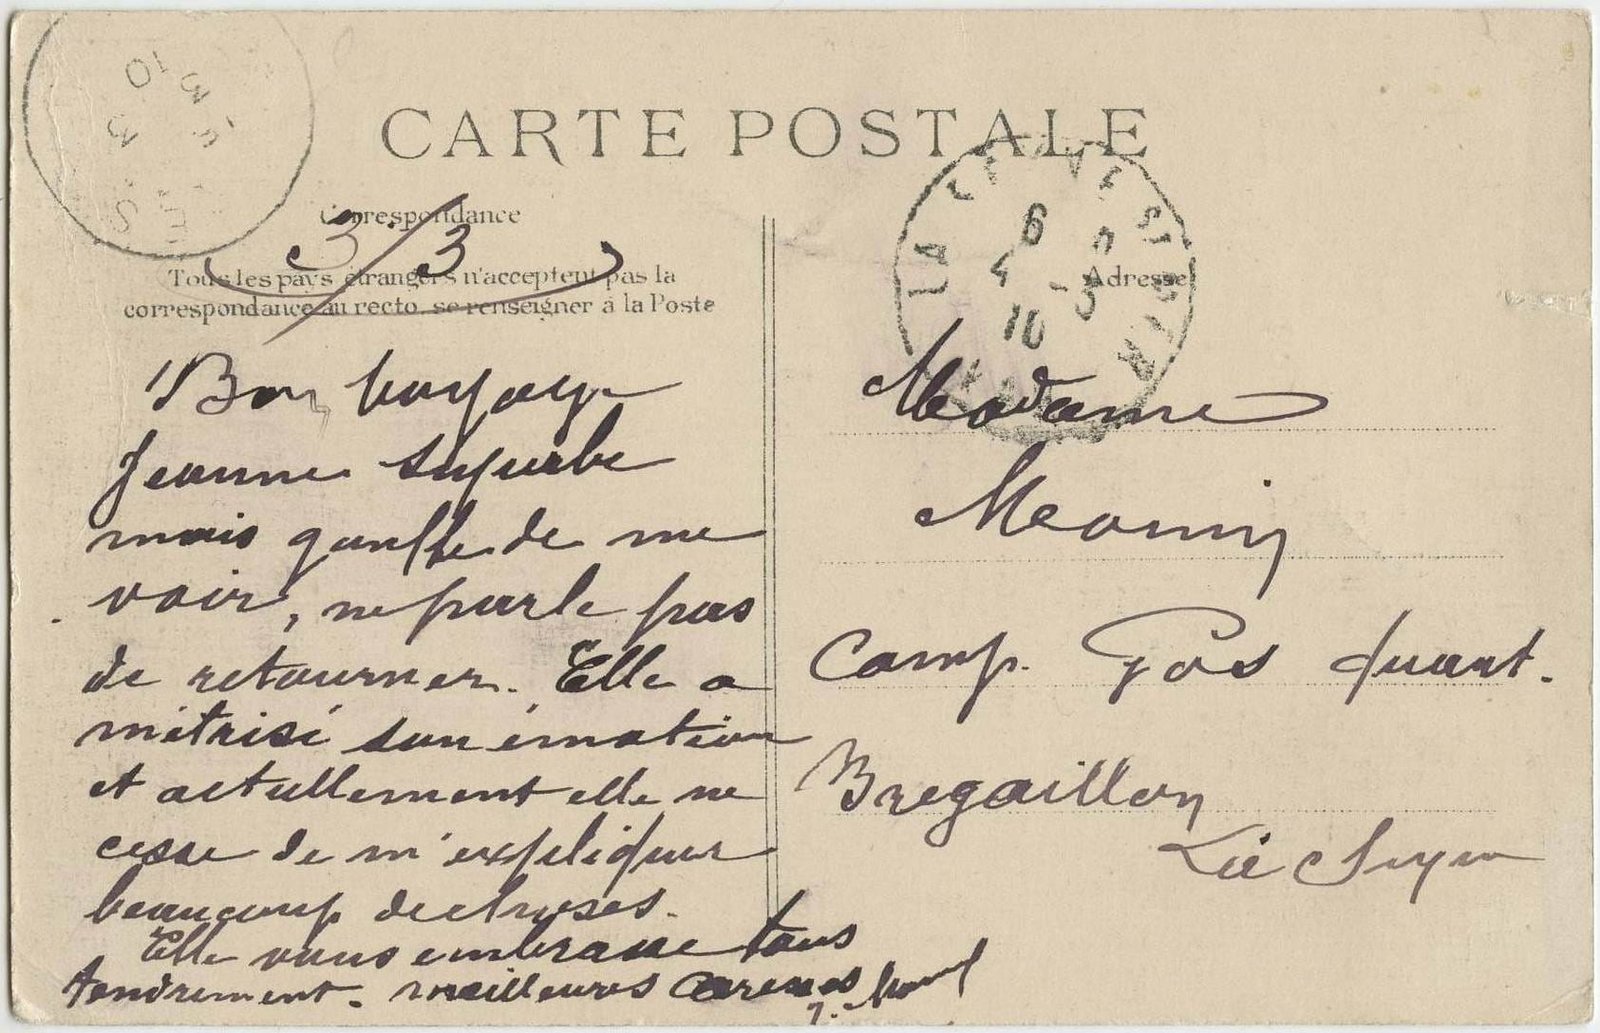 CARTE POSTALE
Correspondance
3/3
Tous les pays étrangers n'acceptent pas la
correspondance au recto, se renseigner à la Poste
Adresse
6
4 - 3
10
3
10
Bon voyage
Jeanne superbe
mais de me
voir, ne parle pas
de retourner. Elle a
métrisé son émotion
et actullement elle ne
cesse de m'expliquer
beaucoup de choses.
Elle vous embrasse tous
tendrement. meilleures caresses
Madame
Camp. Gos
Bregaillon